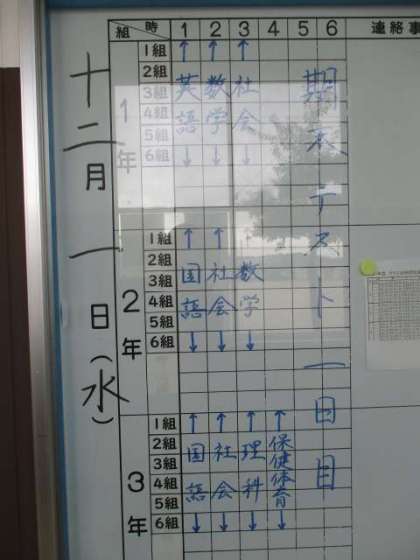 組 時 1 2 3 4 5 6 連絡事
十二月一日(水)
期末テスト一日目
1年
1組
2組
3組
4組
5組
6組
↑ 英語 ↓
↑ 数学 ↓
↑ 社会 ↓
2年
1組
2組
3組
4組
5組
6組
↑ 国語 ↓
↑ 社会 ↓
↑ 数学 ↓
3年
1組
2組
3組
4組
5組
6組
↑ 国語 ↓
↑ 社会 ↓
↑ 理科 ↓
↑ 保健体育 ↓